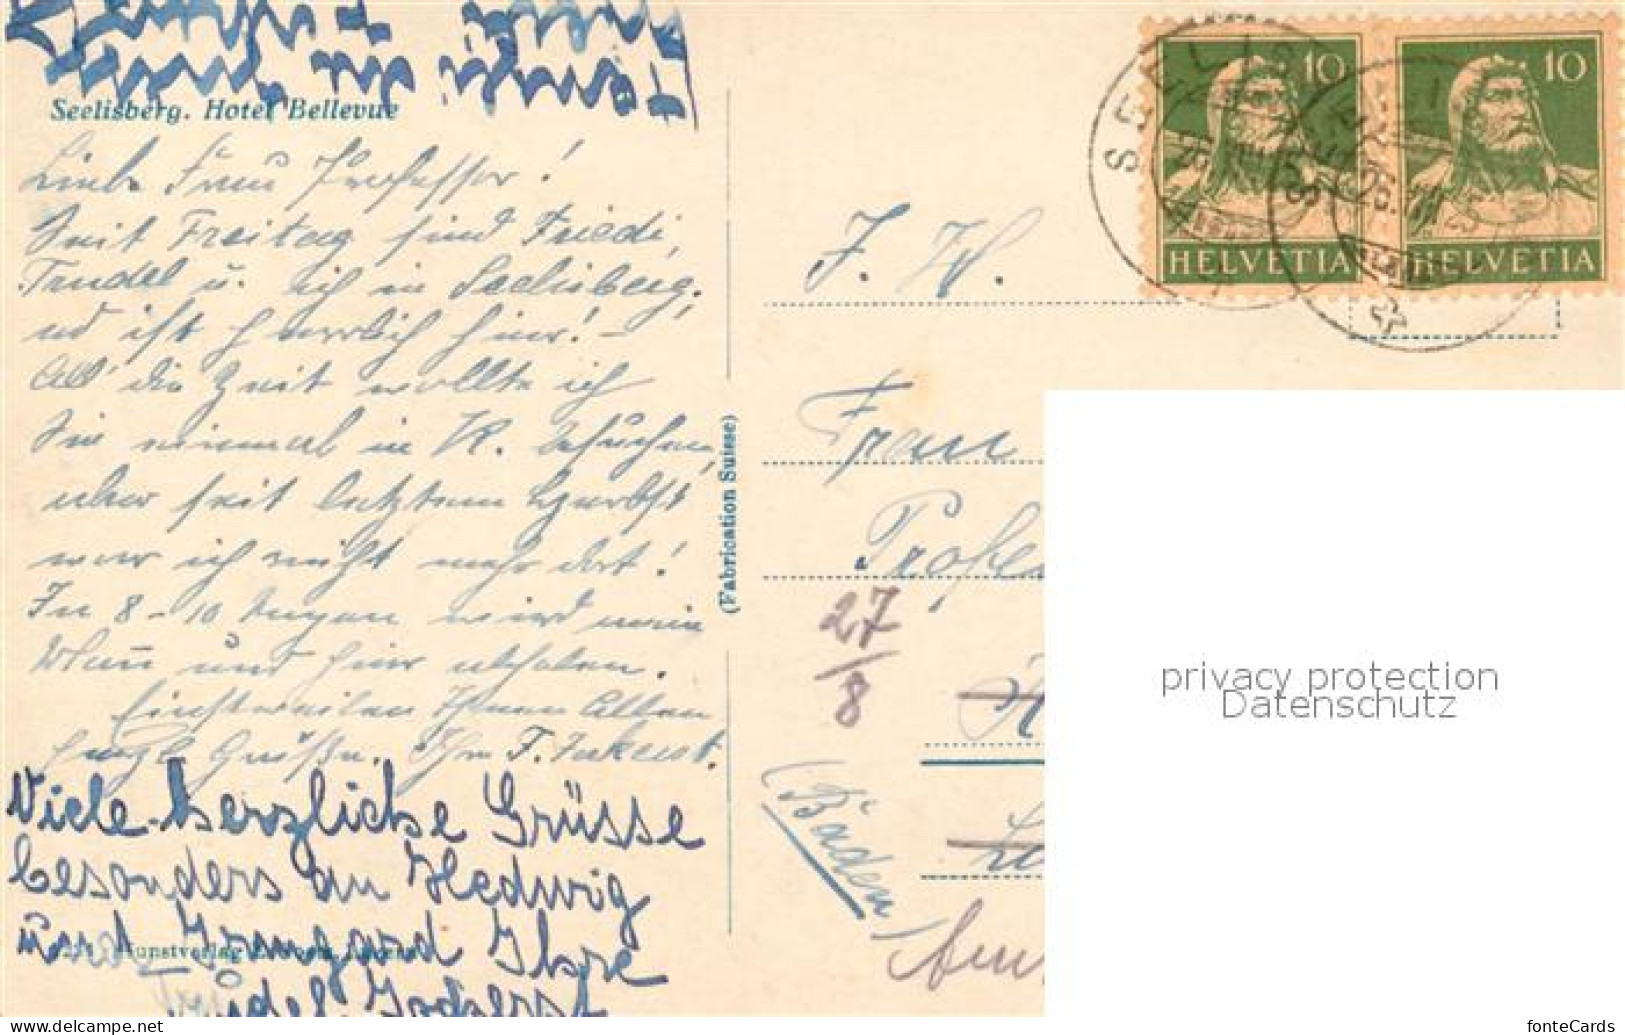 Seelisberg. Hotel Bellevue
Liebe Frau Professor!
Seit Freitag sind Friedi,
Trudel u. ich in Seelisberg,
es ist herrlich hier! –
All' die Zeit wollte ich
Sie einmal in K. besuchen,
aber seit letztem Herbst
war ich nicht mehr dort!
In 8–10 Tagen wird mein
Mann und hier abholen.
Einstweilen Ihnen Allen
herzl. Grüße. Ihre F.
Viele herzliche Grüsse
besonders an Hedwig
und Irmgard Ihre
Trudel
Kunstverlag
(Fabrication Suisse)
SEELISBERG
10
HELVETIA
10
HELVETIA
J. H.
Frau
Profes
27/8
(Baden)
privacy protection
Datenschutz
www.delcampe.net
fonteCards